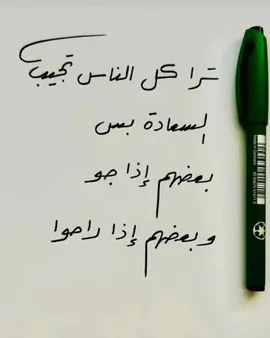 ترا كل الناس تجيب
السعادة بس
بعضهم إذا جو
وبعضهم إذا راحوا